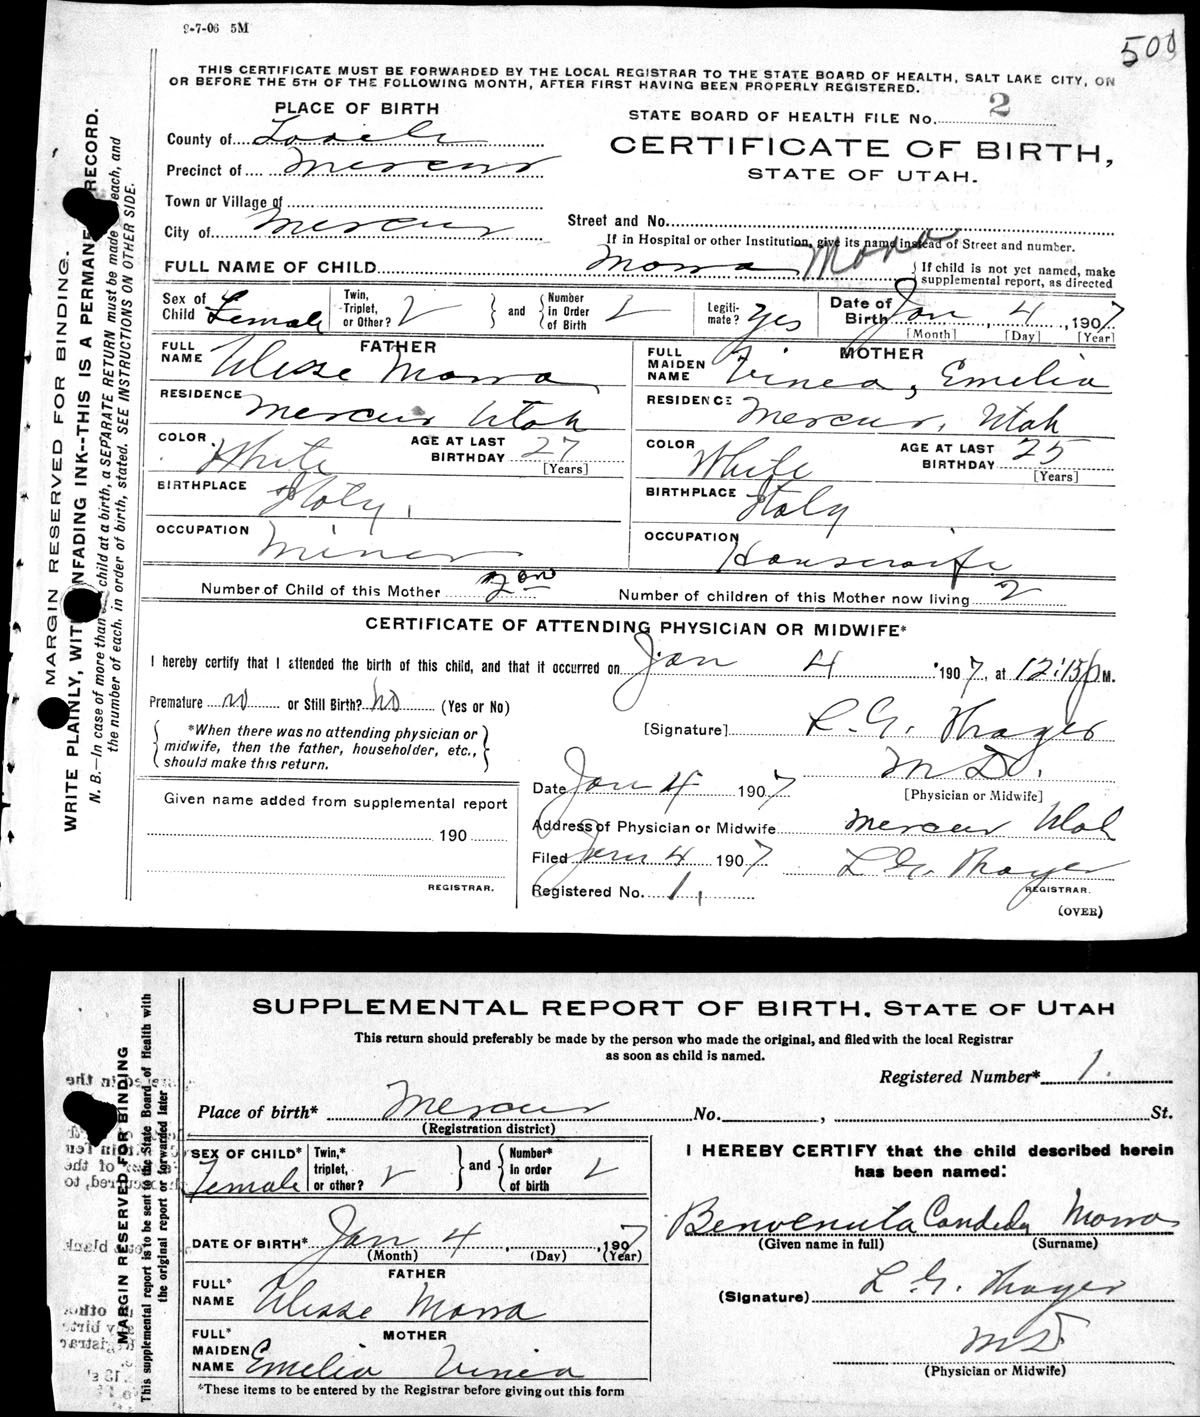 9-7-06 5M
500
THIS CERTIFICATE MUST BE FORWARDED BY THE LOCAL REGISTRAR TO THE STATE BOARD OF HEALTH, SALT LAKE CITY, ON
OR BEFORE THE 5TH OF THE FOLLOWING MONTH, AFTER FIRST HAVING BEEN PROPERLY REGISTERED.
PLACE OF BIRTH
STATE BOARD OF HEALTH FILE No. 2
County of Tooele
CERTIFICATE OF BIRTH,
Precinct of Mercur
STATE OF UTAH.
Town or Village of
Street and No.
City of Mercur
If in Hospital or other Institution, give its name instead of Street and number.
FULL NAME OF CHILD Morra Mona
If child is not yet named, make
supplemental report, as directed
Sex of Child Female Twin, Triplet, or Other? and Number in Order of Birth Legiti-mate? Yes Date of Birth Jan 4, 1907
[Month] [Day] [Year]
FATHER MOTHER
FULL NAME Ulisse Morra FULL MAIDEN NAME Vinea, Emelia
RESIDENCE Mercur Utah RESIDENCE Mercur, Utah
COLOR White AGE AT LAST BIRTHDAY 27 [Years] COLOR White AGE AT LAST BIRTHDAY 25 [Years]
BIRTHPLACE Italy. BIRTHPLACE Italy
OCCUPATION Miner OCCUPATION Housewife
Number of Child of this Mother 2 Number of children of this Mother now living 2
CERTIFICATE OF ATTENDING PHYSICIAN OR MIDWIFE*
I hereby certify that I attended the birth of this child, and that it occurred on Jan 4 1907, at 12:15 P M.
Premature no or Still Birth? no (Yes or No)
*When there was no attending physician or
midwife, then the father, householder, etc.,
should make this return.
[Signature] L. G. Thayer
M D.
[Physician or Midwife]
Date Jan 4 1907
Given name added from supplemental report
190
REGISTRAR.
Address of Physician or Midwife Mercur Utah
Filed Jan 4 1907 L G. Thayer
REGISTRAR.
Registered No. 1.
(OVER)
MARGIN RESERVED FOR BINDING.
WRITE PLAINLY, WITH UNFADING INK--THIS IS A PERMANENT RECORD.
N. B.—In case of more than child at a birth, a SEPARATE RETURN must be made each, and
the number of each, in order of birth, stated. SEE INSTRUCTIONS ON OTHER SIDE.
SUPPLEMENTAL REPORT OF BIRTH, STATE OF UTAH
This return should preferably be made by the person who made the original, and filed with the local Registrar
as soon as child is named.
Registered Number* 1.
Place of birth* Mercur No. , St.
(Registration district)
SEX OF CHILD* Female Twin,* triplet, or other? and Number* in order of birth
I HEREBY CERTIFY that the child described herein
has been named:
Benvenuta Candeda Morra
(Given name in full) (Surname)
DATE OF BIRTH* Jan 4, 1907
(Month) (Day) (Year)
FATHER
FULL* NAME Ulisse Morra
(Signature) L G. Thayer
M D.
(Physician or Midwife)
MOTHER
FULL* MAIDEN NAME Emelia Vinea
*These items to be entered by the Registrar before giving out this form
MARGIN RESERVED FOR BINDING
This supplemental report is to be sent to the State Board of Health with
the original report or forwarded later